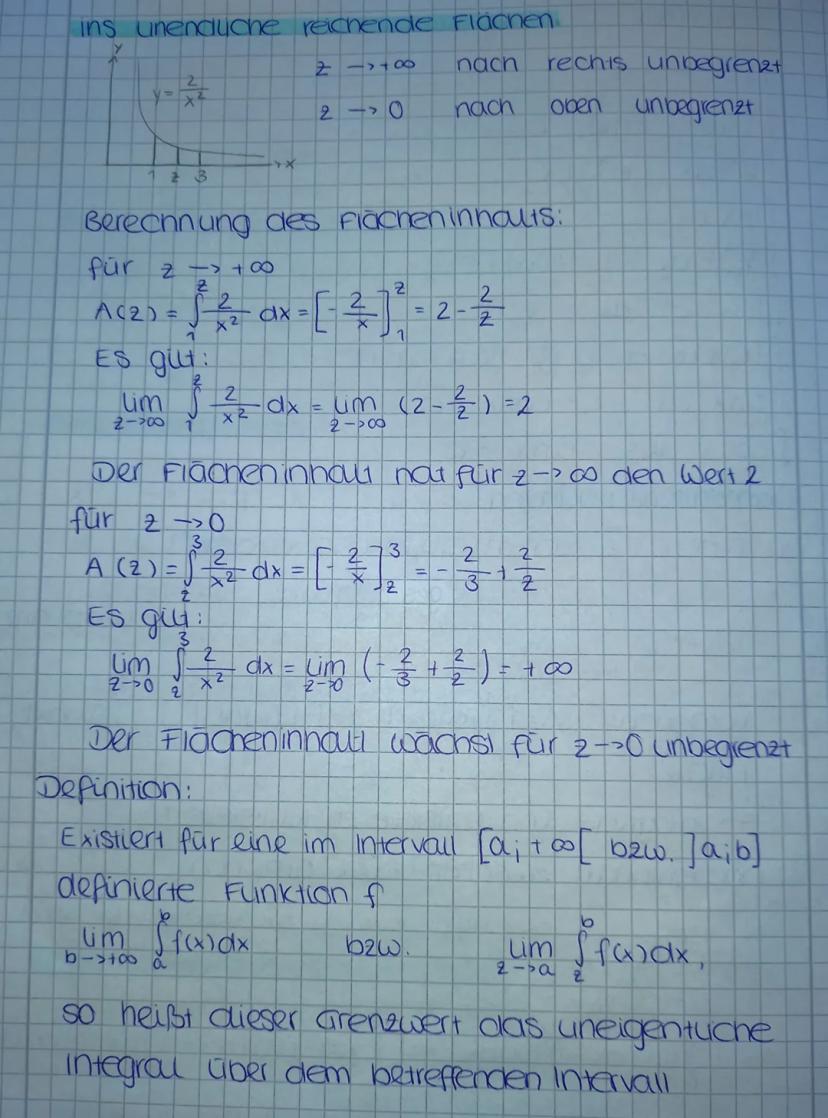 ins unendliche reichende Flächen
y
y = 2/x²
z → +∞ nach rechts unbegrenzt
z → 0 nach oben unbegrenzt
→x
1 z 3
Berechnung des Flächeninhalts:
für z → +∞
A(z) = ∫₁ᶻ 2/x² dx = [-2/x]₁ᶻ = 2 - 2/z
Es gilt:
lim z→∞ ∫₁ᶻ 2/x² dx = lim z→∞ (2 - 2/z) = 2
Der Flächeninhalt hat für z → ∞ den Wert 2
für z → 0
A (z) = ∫_z³ 2/x² dx = [-2/x]_z³ = -2/3 + 2/z
Es gilt:
lim z→0 ∫_z³ 2/x² dx = lim z→0 (-2/3 + 2/z) = +∞
Der Flächeninhalt wächst für z → 0 unbegrenzt
Definition:
Existiert für eine im Intervall [a; +∞[ bzw. ]a;b]
definierte Funktion f
lim b→+∞ ∫ₐᵇ f(x)dx bzw. lim z→a ∫_zᵇ f(x)dx,
so heißt dieser Grenzwert das uneigentliche
Integral über dem betreffenden Intervall